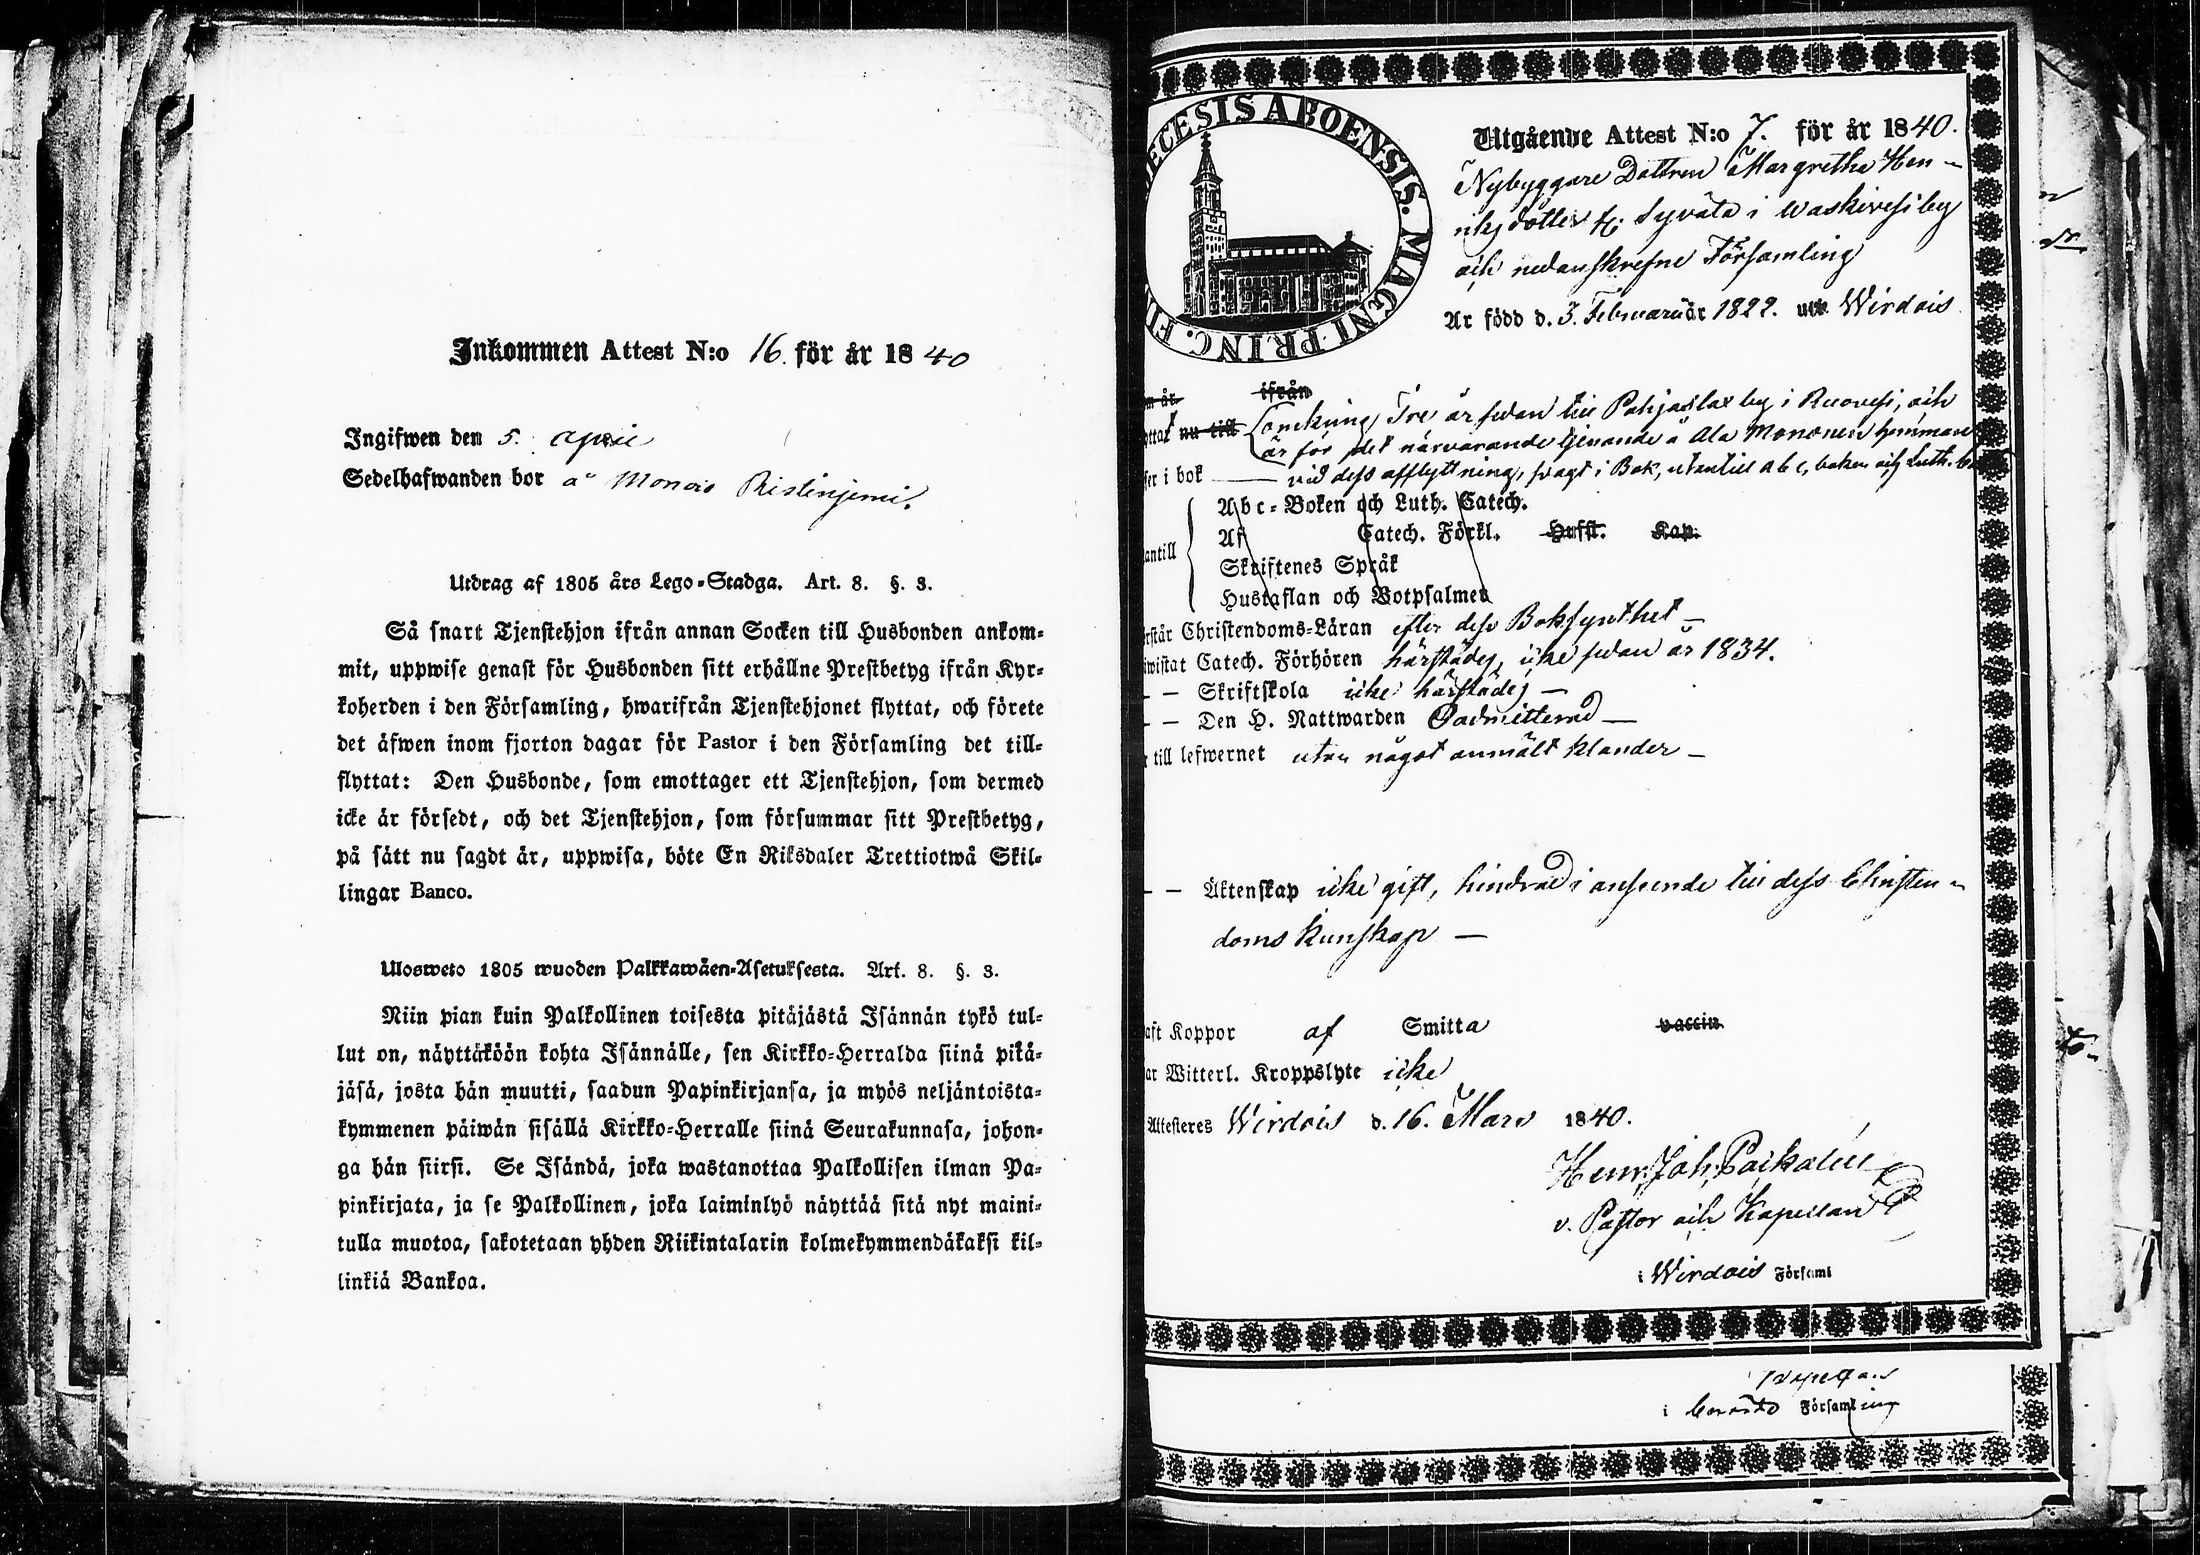 Inkommen Attest N:o 16. för år 1840
Ingifwen den 5. april
Sedelhafwanden bor å Monois Ristinjemi.
Utdrag af 1805 års Lego-Stadga. Art. 8. §. 3.
Så snart Tjenstehjon ifrån annan Socken till Husbonden ankom-
mit, uppwise genast för Husbonden sitt erhållne Prestbetyg ifrån Kyr-
koherden i den Församling, hwarifrån Tjenstehjonet flyttat, och förete
det äfwen inom fjorton dagar för Pastor i den Församling det till-
flyttat: Den Husbonde, som emottager ett Tjenstehjon, som dermed
icke är försedt, och det Tjenstehjon, som försummar sitt Prestbetyg,
på sätt nu sagdt är, uppwisa, böte En Riksdaler Trettiotwå Skil-
lingar Banco.
Ulosweto 1805 wuoden Palkkawäen-Asetuksesta. Art. 8. §. 3.
Niin pian kuin Palkollinen toisesta pitäjästä Isännän tykö tul-
lut on, näyttäköön kohta Isännälle, sen Kirkko-Herralda siinä pitä-
jäsä, josta hän muutti, saadun Papinkirjansa, ja myös neljäntoista-
kymmenen päiwän sisällä Kirkko-Herralle siinä Seurakunnasa, johon-
ga hän siirsi. Se Isändä, joka wastanottaa Palkollisen ilman Pa-
pinkirjata, ja se Palkollinen, joka laiminlyö näyttää sitä nyt maini-
tulla muotoa, sakotetaan yhden Riikintalarin kolmekymmendäkaksi kil-
linkiä Bankoa.
ECESIS ABOENSIS. MAGNI PRINC. FI
Utgående Attest N:o 7. för år 1840.
Nybyggare Dottren Margretha Hen-
riksdotter fr. Syvälä i Waskivesi by
och nedanskrefne Församling
Är född d. 3. Februarii år 1822. uti Wirdois
m år ifrån
yttat nu till omkring Tre år sedan till Pohjaslax by i Ruovesi, och
är för det närvarande tjenande å Ala Mononen hemman
ser i bok vid dess afflyttning, svagt i Bok, utantill abc, boken och Luth.
antill Abc-Boken och Luth. Catech.
Af Catech. Förkl. Hufst. Kap.
Skriftenes Språk
Hustaflan och Botpsalmer
rstår Christendoms-Läran efter dess Boksynthet
iwistat Catech. Förhören härstädes, icke sedan år 1834.
– – Skriftskola icke härstädes –
– – Den H. Nattwarden Oadmitterad –
till lefwernet utan något anmält klander –
– – Äktenskap icke gift, hindrad i anseende till dess Christen-
doms kunskap –
aft Koppor af Smitta vaccin.
ar Witterl. Kroppslyte icke
Attesteres Wirdois d. 16. Mars 1840.
Henr. Joh. Paikalén
v. Pastor och Kapellan
i Wirdois Församl
i Församling